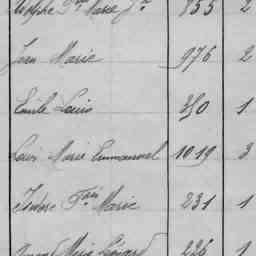 Marie 855 2
Jean Marie 976 2
Emile Louis 350 1
Louis Marie Emmanuel 1019 3
Isidore Fçois Marie 231 1
Marie 226 1